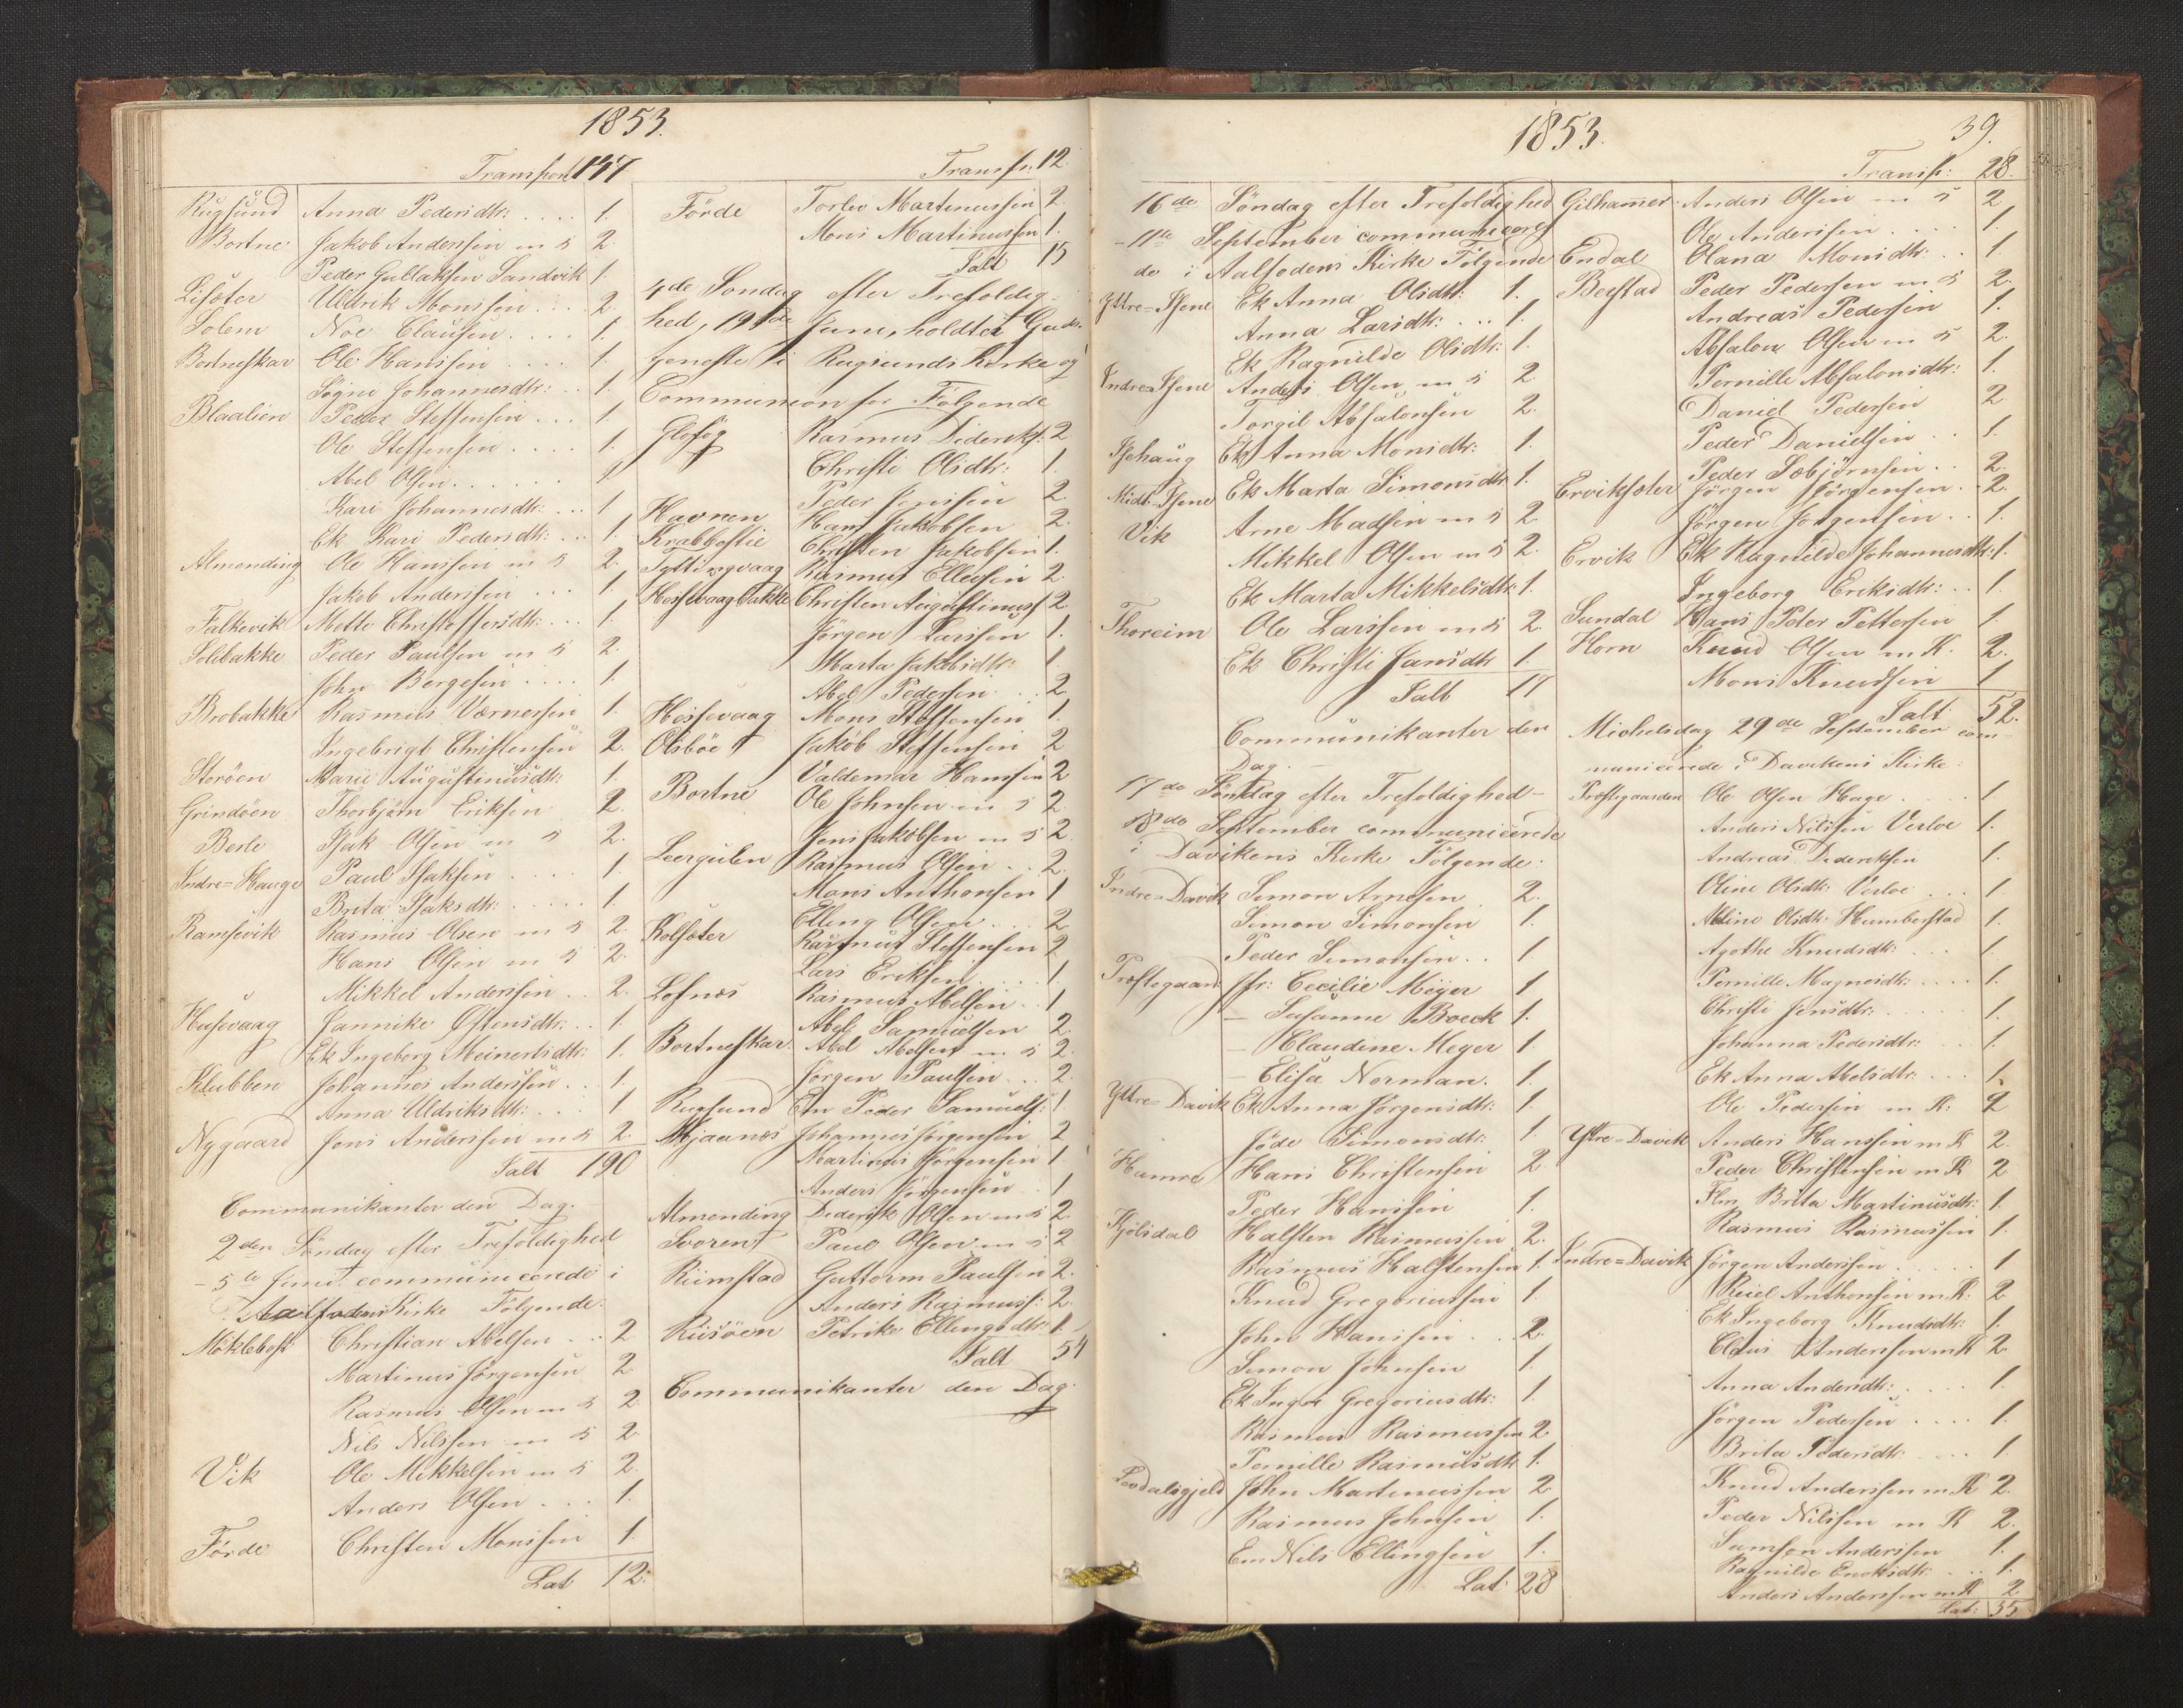 1853.
Transport 147
Rugsund Anna Pedersdtr: .... 1.
Bortne Jakob Anderssen m h 2
Peder Gullaksen Sandvik 1.
Lisöter Uldrik Monssen ... 2.
Solem Noe Claussen .... 1.
Bortneskar Ole Hanssen .... 1.
Søgni Johannesdtr: . 1.
Blaalien Peder Steffensen ... 1.
Ole Steffensen .... 1.
Abel Olsen ...... 1
Kari Johannesdtr: ... 1
Ek Kari Pedersdtr: ... 1.
Almending Ole Hanssen m h 2.
Jakob Anderssen ... 1.
Falkevik Mette Christoffersdtr: ... 1.
Solibakke Peder Paulsen m h 2.
John Børgesen .... 1.
Brobakke Rasmus Værnersen 1.
Ingebrigt Christensen 2.
Storöen Marie Augustinusdtr: 1.
Grindöen Thorbjörn Eriksen 2.
Berle Isak Olsen m h 2.
Indre-Hauge Paul Isaksen .... 1.
Brita Isaksdtr: ..... 1.
Ramsevik Rasmus Olsen m h 2
Hans Olsen m h 2.
Mikkel Anderssen .. 2.
Husevaag Jannike Østensdtr: .. 1.
Ek Ingeborg Meinertsdtr: 1.
Klubben Johannes Anderssen .. 1.
Anna Uldriksdtr: ... 1
Nygaard Jens Anderssen m h 2.
Ialt 190
Communikanter den Dag.
2den Söndag efter Trefoldighed
- 5te Juni communicerede i
Aalfodens Kirke Følgende:
Møklebost Christian Abelsen .. 2
Martinus Jörgensen 2
Rasmus Olsen m h 2
Nils Nilssen m h 2
Vik Ole Mikkelsen m h 2.
Anders Olsen ... 1.
Förde Christen Monssen 1.
Lat 12.
Transp. 12.
Förde Torlev Martinussen 2.
Mons Martinussen 1.
Ialt 15
4de Söndag efter Trefoldig-
hed, 19de Juni, holdtes Guds-
tjeneste i Rugsunds Kirke og
Communion for Følgende
Rasmus Dideriks. 2
Christi Olsdtr: 1.
Peder Jenssen 2
Havnen Hans Jakobsen 2.
Krabbestie Christen Jakobsen 1.
Tyttingvaag Rasmus Ellensen 2
Hessevaagbakke Christen Augustinuss. 2
Jörgen Larssen 1.
Marta Jakobsdtr: 1.
Abel Pedersen .. 2
Hessevaag Mons Steffensen 1.
Olsböe Jakob Steffensen 2
Valdemar Hanssen 2
Bortne Ole Johnsen m h 2.
Jens Jakobsen m h 2
Leergulen Rasmus Olsen .. 2.
Mons Anthonsen 1
Elling Olsen ... 2
Kolsöter Rasmus Steffensen 2
Lars Eriksen ... 1
Lefnes Rasmus Abelsen . 1
Abel Samuelsen 2
Bortneskar Abel Abelsen m h 2.
Jörgen Paulsen ... 2.
Rugsund Em Peder Samuels: 1
Mjaanes Johannes Jörgensen 2
Martinus Jörgensen 1
Anders Jörgensen .. 1
Almending Diderik Olsen m h 2
Svoren Paul Olsen m h 2
Riimstad Guttorm Paulsen 2.
Anders Rasmuss: 2.
Risöen Petrike Ellingsdtr: 1.
Ialt 54
Communikanter den Dag.
1853.
39.
16de Söndag efter Trefoldighed
- 11te September communicere-
de i Aalfodens Kirke Følgende
Yttre-Isene Ek Anna Olsdtr: 1.
Anna Larsdtr: ... 1.
Ek Ragnilde Olsdtr: 1.
Indre-Isene Anders Olsen m h 2
Torgil Absalonsen 2.
Isehaug Ek Anna Monsdtr: 1.
Midt-Isene Ek Marta Simonsdtr: 1.
Vik Arne Madsen m h 2
Mikkel Olsen m h 2.
Ek Marta Mikkelsdtr: 1.
Thoreim Ole Larssen m h 2.
Ek Christi Jansdtr 1.
Ialt 17
Communikanter den
Dag. —
17de Söndag efter Trefoldighed —
18de September communicerede
i Davikens Kirke Følgende:
Indre-Davik Simon Arnesen 2.
Simon Simonsen 1.
Peder Simonsen .. 1
Præstegaard: Jfr: Cecilie Meyer 1
— Susanne Boeck 1.
— Claudine Meyer 1
— Elisa Norman. 1.
Yttre-Davik Ek Anna Jörgensdtr: 1.
Jöde Simonsdtr: 1.
Hamre Hans Christensen 2
Peder Hanssen 1.
Kjölsdal Halsten Rasmussen 2.
Rasmus Halstensen 1.
Knud Gregoriussen 1.
John Hanssen .. 2.
Simon Johnsen 1.
Ek Inger Gregoriusdtr: 1.
Rasmus Rasmussen 2
Pernille Rasmusdtr 1.
John Martinussen 2
Rasmus Johnsen 1.
Em Nils Ellingsen 1.
Lat: 28
Transp: 28.
Gilhammer Anders Olsen m h 2
Ole Anderssen .... 1.
Endal Olana Monsdtr: .. 1
Berstad Peder Pedersen m h 2.
Andreas Pedersen 1.
Absalon Olsen m h 2.
Pernille Absalonsdtr: 1.
Daniel Pedersen 2
Peder Danielsen .. 1.
Peder Sæbjörnsen .. 2.
Erviksöter Jörgen Jörgensen .. 2.
Jörgen Jörgensen .. 1.
Ervik Ek Ragnilde Johannesdtr: 1.
Ingeborg Eriksdtr: .. 1.
Sundal Hans Peter Pettersen 1
Horn Knud Olsen m K. 2.
Mons Knudsen 1
Ialt 52.
Michelsdag 29de September com-
municerede i Davikens Kirke:
Præstegaarden Ole Olsen Hage .... 1
Anders Nilssen Verloe 1.
Andreas Dideriksen 1.
Oline Olsdtr: Verloe ... 1.
Abline Olsdtr: Humborstad 1.
Agothe Knudsdtr: ... 1.
Pernille Magnesdtr: .... 1.
Christi Jensdtr: .... 1.
Johanna Pedersdtr: ... 1.
Ek Anna Abelsdtr: ... 1.
Ole Pedersen m K: 2
Yttre-Davik Anders Hanssen m K 2.
Peder Christensen m K 2
Brita Martinusdtr: 1.
Rasmus Rasmussen 1.
Indre-Davik Jörgen Anderssen ..... 1
Reiel Anthonsen m K. 2
Ek Ingeborg Knudsdtr: 1.
Claus Anderssen m K 2.
Anna Andersdtr: .... 1.
Jörgen Pedersen .... 1.
Brita Pedersdtr: ... 1
Knud Anderssen m K 2.
Peder Nilssen m K 2.
Samson Anderssen 1.
Ragnilde Enoksdtr: .. 1.
Anders Anderssen m K 2
Lat: 35